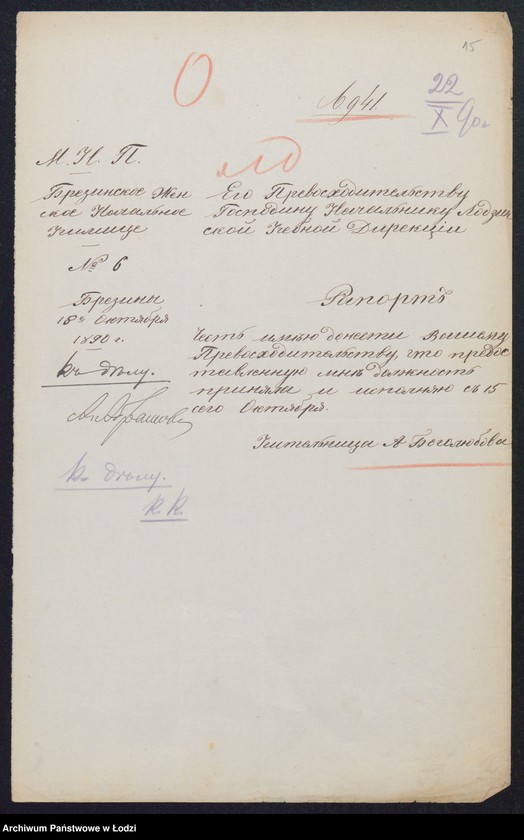 15
22
X 90 г.
М. Н. П.
Брезинское Жен
ское Начальное
Училище
№ 6
Брезины
18го Октября
1890 г.
къ дѣлу.
къ дѣлу.
К. К.
Его Превосходительству
Господину Начальнику Лодзин
ской Учебной Дирекціи
Рапортъ
Честь имѣю донести Вашему
Превосходительству, что предос
тавленную мнѣ должность
приняла и исполняю съ 15
сего Октября.
Учительница А Боголюбова
Archiwum Państwowe w Łodzi